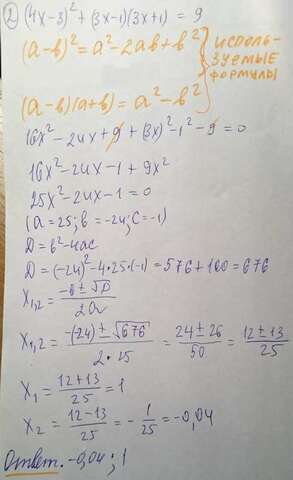 2) (4x-3)² + (3x-1)(3x+1) = 9
(а-в)² = а² - 2ав + в²
исполь-
зуемые
формулы
(а-в)(а+в) = а² - в²
16x² - 24x + 9 + (3x)² - 1² - 9 = 0
16x² - 24x - 1 + 9x²
25x² - 24x - 1 = 0
(а = 25; в = -24; с = -1)
D = в² - 4ас
D = (-24)² - 4·25·(-1) = 576 + 100 = 676
x₁,₂ = (-в ± √D) / 2а
x₁,₂ = (-(-24) ± √676) / (2·25) = (24 ± 26) / 50 = (12 ± 13) / 25
x₁ = (12 + 13) / 25 = 1
x₂ = (12 - 13) / 25 = - 1/25 = -0,04
Ответ. -0,04; 1